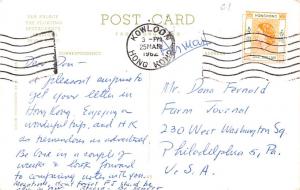 POST CARD
CORRESPONDENCE
KOWLOON
3 - PM
25 MAR
1962
HONG KONG
HONGKONG
Dear Don -
A pleasant surprise to
get your letter in
Hong Kong. Enjoying a
wonderful trip, and H.K.
as tremendous as advertised.
Be home in a couple of
weeks & look forward
to comparing notes with you...
Mr. Dana Fernald
Farm Journal
230 West Washington Sq.
Philadelphia 5, Pa.
U.S.A.